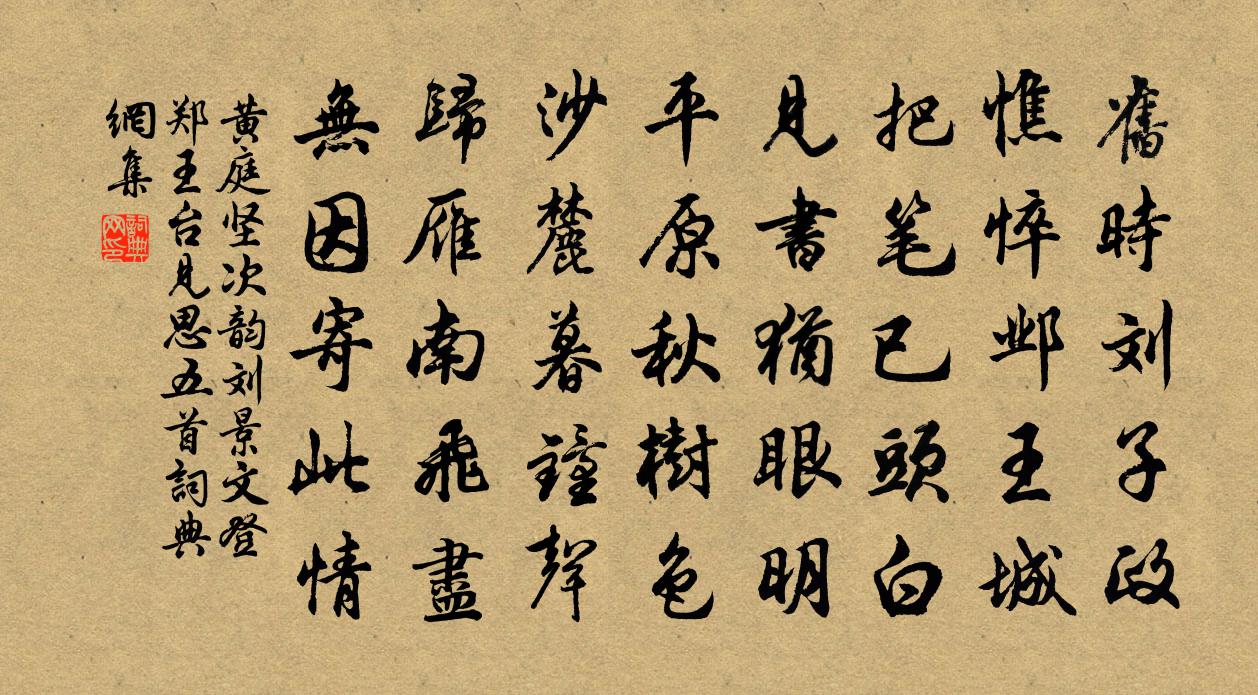 舊時刘子政
憔悴邺王城
把笔已頭白
見書猶眼明
平原秋樹色
沙麓暮鐘聲
歸雁南飛盡
無因寄此情
黄庭坚次韵刘景文登
郑王台見思五首詞典
網集
詞典网印